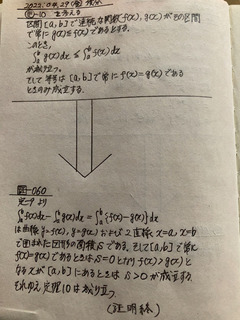 2022.04.29(金)
定-10 を考える
区間[a,b]で連続な関数f(x), g(x)がこの区間
で常にg(x)≦f(x)であるとする。
このとき、
∫ₐᵇg(x)dx ≦ ∫ₐᵇf(x)dx
が成り立つ。
そして等号は[a,b]で常にf(x)=g(x)である
ときのみ成立する。
図-060
定-9より
∫ₐᵇf(x)dx-∫ₐᵇg(x)dx=∫ₐᵇ{f(x)-g(x)}dx
は曲線y=f(x), y=g(x)および2直線x=a, x=b
で囲まれた図形の面積Sである。そして[a,b]で常に
f(x)=g(x)であるときはS=0となりf(x)>g(x)と
なるxが[a,b]にあるときはS>0が成立する。
それゆえ定理10は成り立つ。
(証明終)